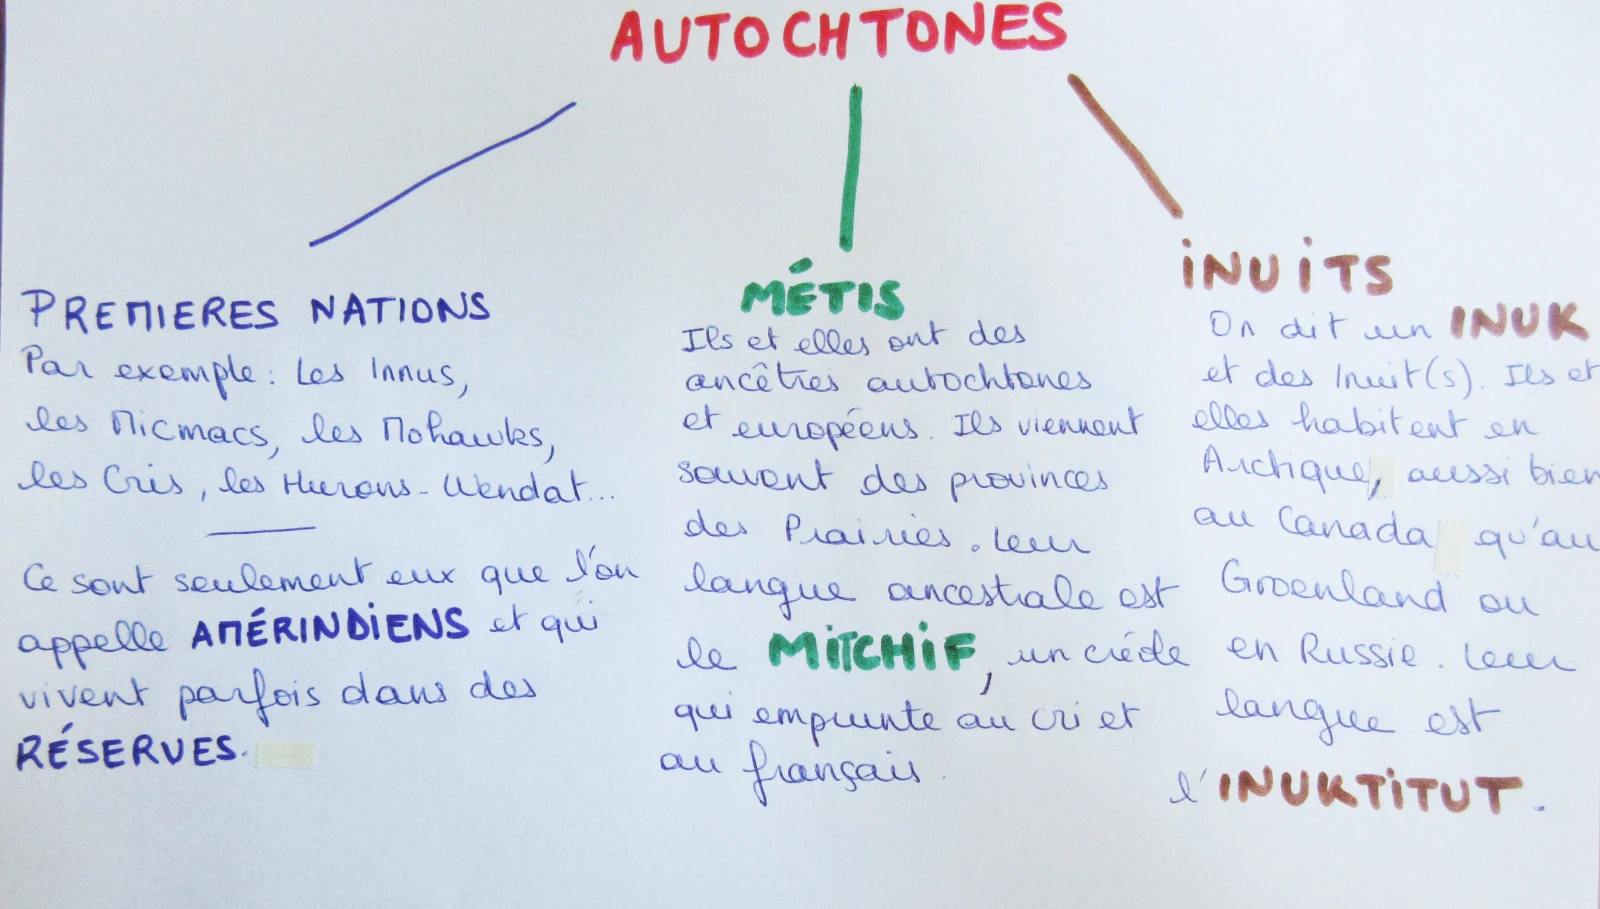 AUTOCHTONES
PREMIERES NATIONS
Par exemple : Les Innus,
les Micmacs, les Mohawks,
les Cris, les Hurons-Wendat...
Ce sont seulement eux que l'on
appelle AMÉRINDIENS et qui
vivent parfois dans des
RÉSERVES.
MÉTIS
Ils et elles ont des
ancêtres autochtones
et européens. Ils viennent
souvent des provinces
des Prairies. Leur
langue ancestrale est
le MITCHIF, un créole
qui emprunte au cri et
au français.
INUITS
On dit un INUK
et des Inuit(s). Ils et
elles habitent en
Arctique, aussi bien
au Canada qu'au
Groenland ou
en Russie. Leur
langue est
l'INUKTITUT.